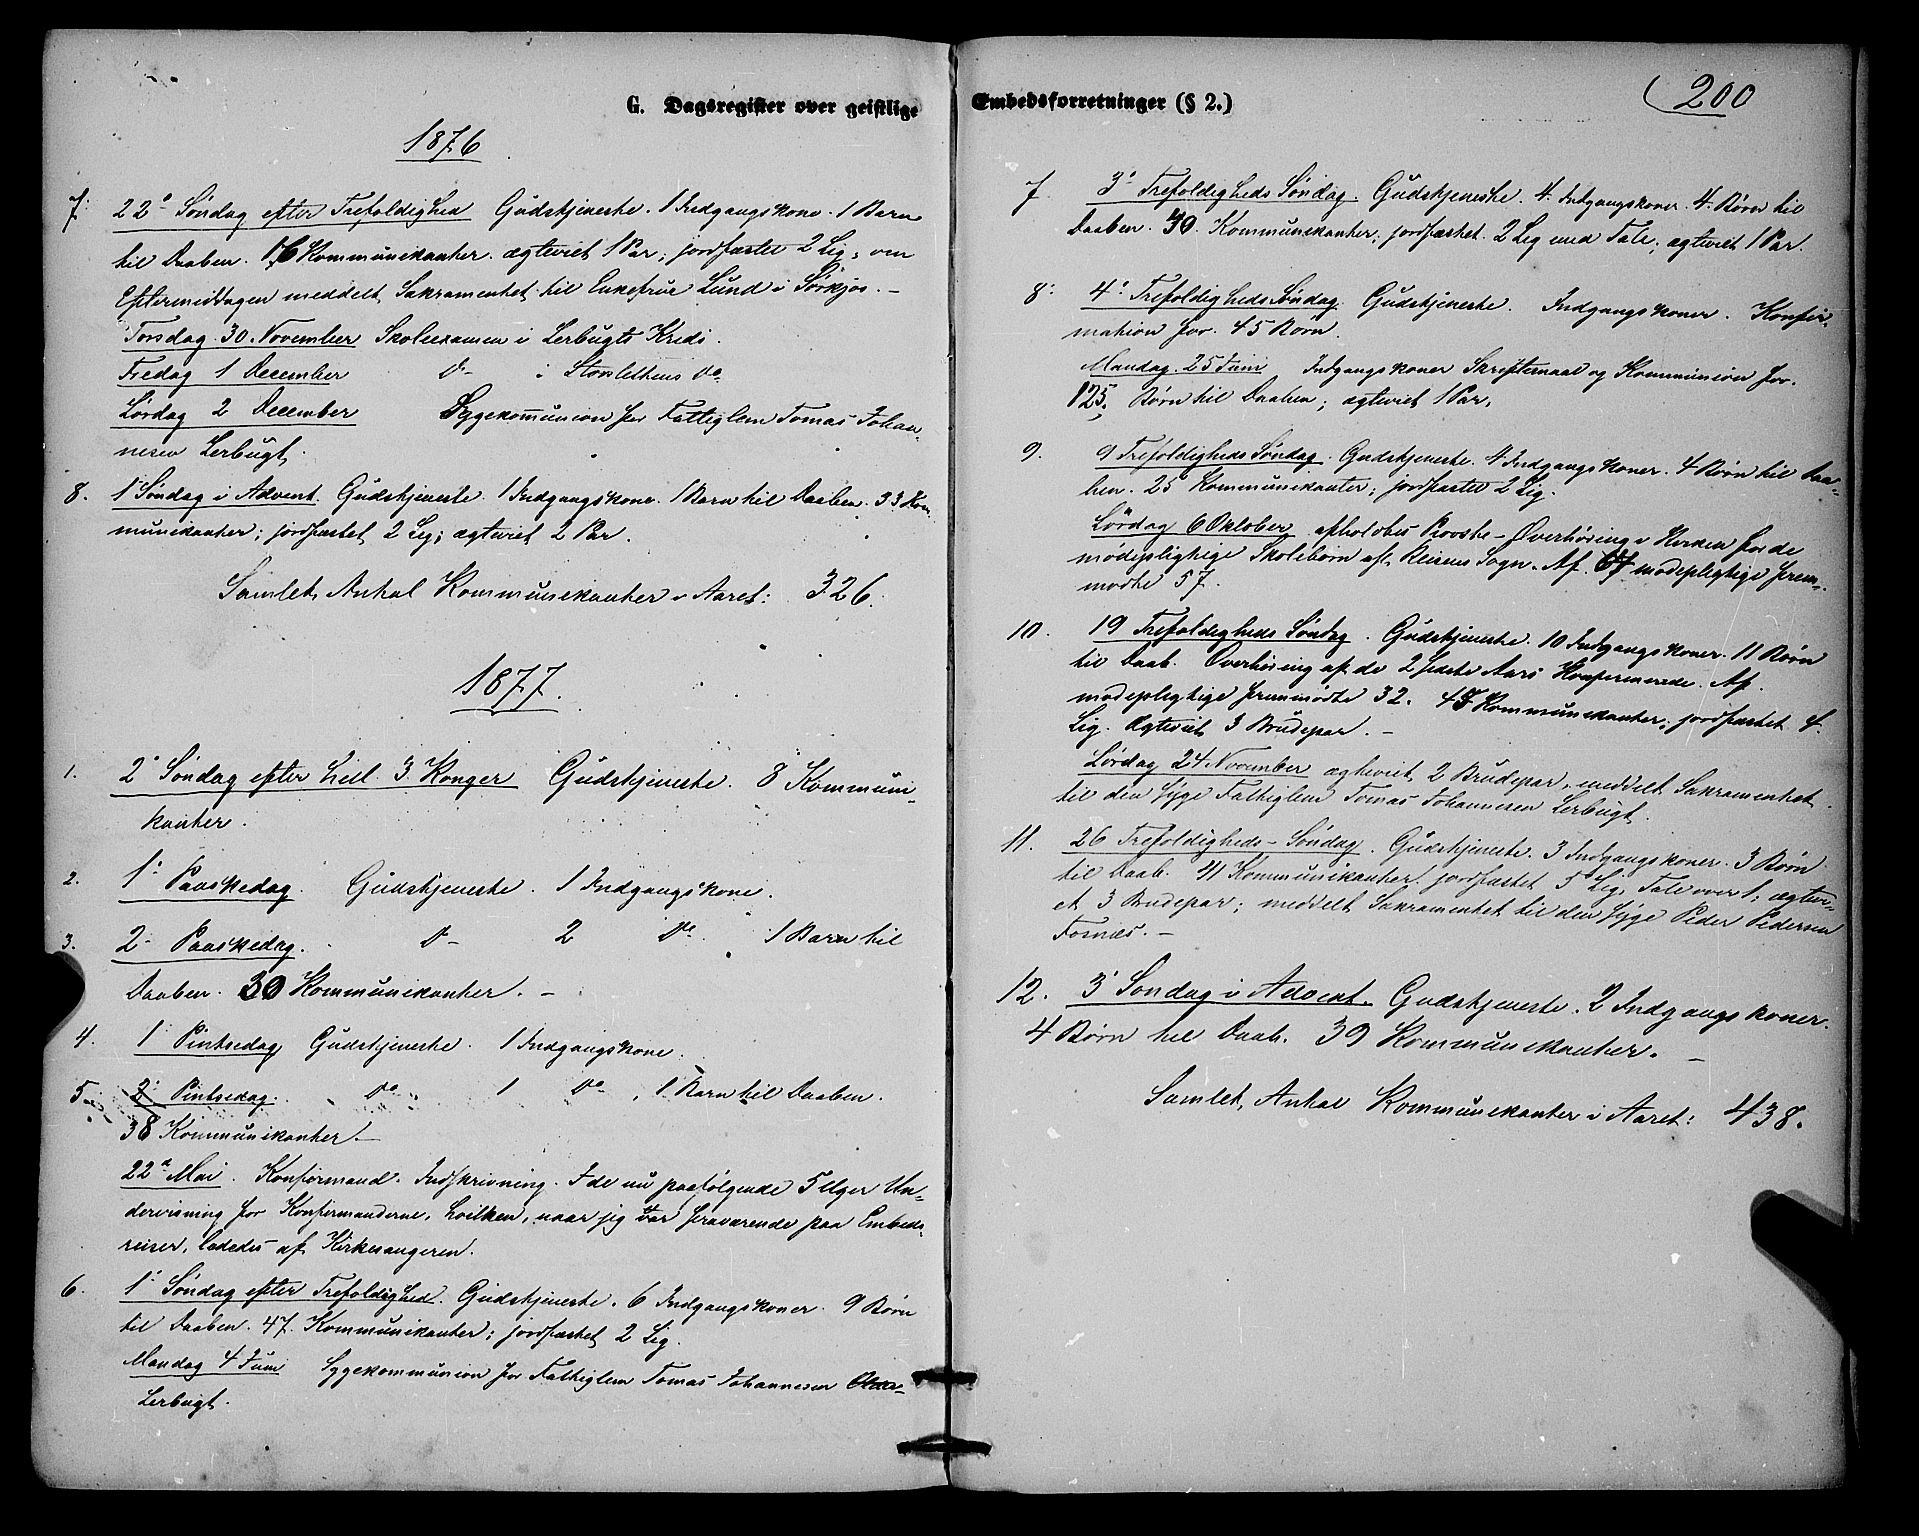 G. Dagsregister over geistlige
1876
7. 22° Søndag efter Trefoldighed Gudstjeneste. 1 Indgangskone. 1 Barn
til Daaben. 16 Kommunikanter. ægteviet 1 Par; jordfæstet 2 Lig, om
Eftermiddagen meddelt Sakramentet til Enkefrue Lund i Sørkjos. –
Torsdag 30. November Skoleexamen i Lerbugts Kreds.
Fredag 1 December do i Storslettens do
Lørdag 2 December Sygekommunion for Fattiglem Tomas Johan-
nesen Lerbugt.
8. 1 Søndag i Advent. Gudstjeneste. 1 Indgangskone. 1 Barn til Daaben. 33 Kom-
munikanter; jordfæstet 2 Lig; ægteviet 2 Par.
Samlet Antal Kommunikanter i Aaret: 326.
1877.
1. 2° Søndag efter Hell. 3 Konger Gudstjeneste. 8 Kommuni-
kanter.
2. 1° Paaskedag. Gudstjeneste. 1 Indgangskone.
3. 2° Paaskedag. do 2 do 1 Barn til
Daaben. 30 Kommunikanter. –
4. 1° Pintsedag Gudstjeneste. 1 Indgangskone.
5. 2° Pintsedag. do 1 do, 1 Barn til Daaben.
38 Kommunikanter. –
22de Mai. Konfirmand-Indskrivning. I de nu paafølgende 5 Uger Un-
dervisning for Konfirmanderne, hvilken, naar jeg var fraværende paa Embeds-
reiser, lededes af Kirkesangeren.
6. 1° Søndag efter Trefoldighed. Gudstjeneste. 6 Indgangskoner. 9 Børn
til Daaben. 47. Kommunikanter; jordfæstet 2 Lig.
Mandag 4 Juni Sygekommunion for Fattiglem Tomas Johannesen
Lerbugt.
Embedsforretninger (§ 2.)
200
7. 3° Trefoldigheds Søndag. Gudstjeneste. 4. Indgangskoner. 4. Børn til
Daaben. 30. Kommunikanter; jordfæstet 2 Lig med Tale; ægteviet 1 Par.
8. 4° Trefoldigheds Søndag. Gudstjeneste. Indgangskoner. Konfir-
mation for 45 Børn.
Mandag 25 Juni Indgangskoner Skriftemaal og Kommunion for
125. Børn til Daaben; ægteviet 1 Par.
9. 9 Trefoldigheds Søndag. Gudstjeneste. 4 Indgangskoner. 4 Børn til Daa-
ben. 25 Kommunikanter; jordfæstet 2 Lig.
Lørdag 6 Oktober afholdtes Provste-Overhøring i Kirken for de
mødepligtige Skolebørn af Reisens Sogn. Af 67 mødepligtige frem-
mødte 57.
10. 19 Trefoldigheds Søndag. Gudstjeneste. 10 Indgangskoner. 11 Børn
til Daab. Overhøring af de 2 sidste Aars Konfirmerede. Af
mødepligtige fremmødte 32. 45 Kommunikanter; jordfæstet 4.
Lig. Ægteviet 3 Brudepar. –
Lørdag 24 November ægteviet 2 Brudepar, meddelt Sakramentet
til den syge Fattiglem Tomas Johannesen Lerbugt.
11. 26 Trefoldigheds-Søndag. Gudstjeneste. 3 Indgangskoner. 3 Børn
til Daab. 41 Kommunikanter. jordfæstet 5 Lig, Tale over 1; ægtevi-
et 3 Brudepar; meddelt Sakramentet til den syge Peder Pedersen
Fornæs. –
12. 3° Søndag i Advent. Gudstjeneste. 2 Indgangskoner.
4 Børn til Daab. 39 Kommunikanter. –
Samlet Antal Kommunikanter i Aaret: 438.